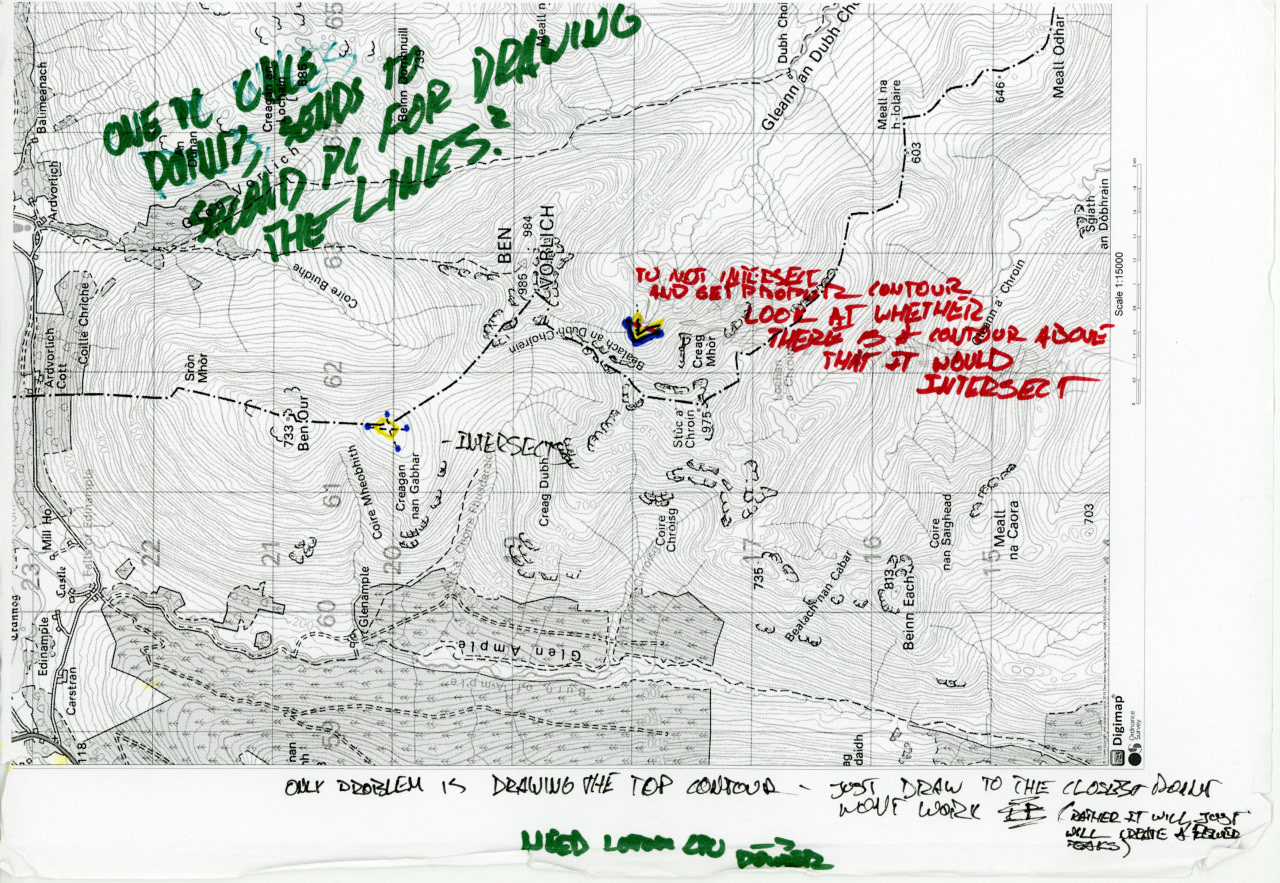 ONE PC
SENDS TO
SECOND PC FOR DRAWING
THE LINES?
TO NOT INTERSECT
AND GET PROPER CONTOUR
LOOK AT WHETHER
THERE IS A CONTOUR ABOVE
THAT IT WOULD
INTERSECT
- INTERSECTS
ONLY PROBLEM IS DRAWING THE TOP CONTOUR - JUST DRAW TO THE CLOSEST POINT
WON'T WORK (RATHER IT WILL, JUST
WILL CREATE A FEWER
PEAKS)
NEED CPU POWER
Balimeanach
Ardvorlich
Ardvorlich
Cott
Coille Chriche
Mill Ho
Castle
Falls of Edinample
Edinample
Carstran
118
23
22
21
20
17
16
15
65
62
61
60
59
Stròn
Mhòr
733
Ben Our
Coire Buidhe
BEN
VORLICH
985
984
Bealach an Dubh Choirein
Creag
Mhòr
Stùc a'
Chroin
975
Coire Mheobhith
Creagan
nan Gabhar
Creag Dubh
700
Coire
Chroisg
735
Bealach nan Cabar
813
Beinn Each
Coire
nan Saighead
Meall
na Caora
703
Glenample
Glen Ample
Burn of Ample
Dubh Choi
Gleann an Dubh Ch
Meall na
h-Iolaire
603
646
Meall Odhar
Sgiath
an Dobhrain
Gleann a' Chroin
Scale 1:15000
Digimap
Ordnance
Survey